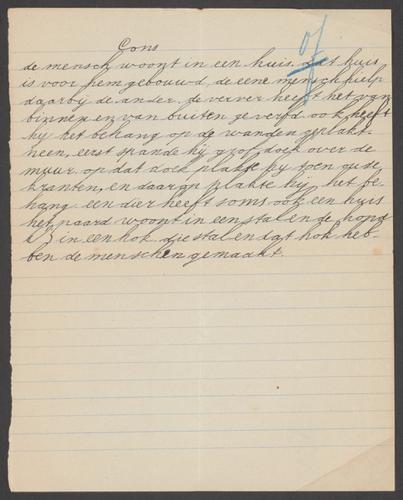 Cons
de mensch woont in een huis. Het huis
is voor hem gebouwd, de eene mensch hielp
daarbij de ander. de verver heeft het van
binnen en van buiten geverfd ook heeft
hij het behang op de wanden geplakt.
neen, eerst spande hij grof doek over de
muur. op dat doek plakte hij toen oude
kranten, en daarop plakte hij het be-
hang een dier heeft soms ook een huis
het paard woont in een stal en de hond
in een hok die stal en dat hok heb-
ben de menschen gemaakt.